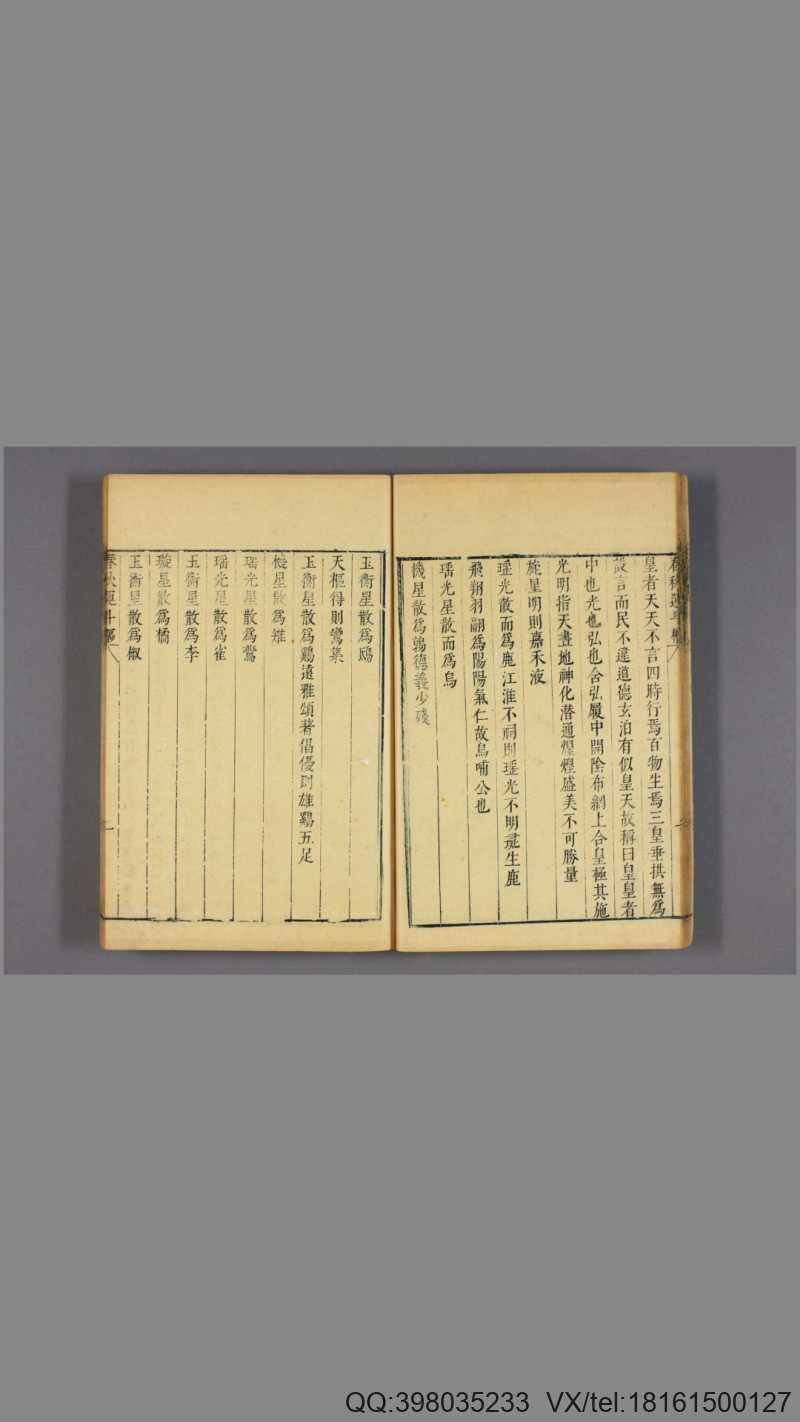 春秋運斗樞
皇者天天不言四時行焉百物生焉三皇垂拱無爲
設言而民不違道德玄泊有似皇天故稱曰皇皇者
中也光也弘也含弘履中開陰布綱上合皇極其施
光明指天畫地神化潛通煌煌盛美不可勝量
旋星明則嘉禾液
瑤光散而爲鹿江淮不祠則瑤光不明麀生鹿
飛翔羽翮爲陽陽氣仁故烏哺公也
瑤光星散而爲烏
機星散爲鶉德義少殘
玉衡星散爲鴟
天樞得則鸞集
玉衡星散爲鷄遠雅頌著倡優則雄鷄五足
機星散爲雉
瑤光星散爲鷩
瑤光星散爲雀
玉衡星散爲李
璇星散爲橘
玉衡星散爲椒
春秋運斗樞
QQ:398035233 VX/tel:18161500127